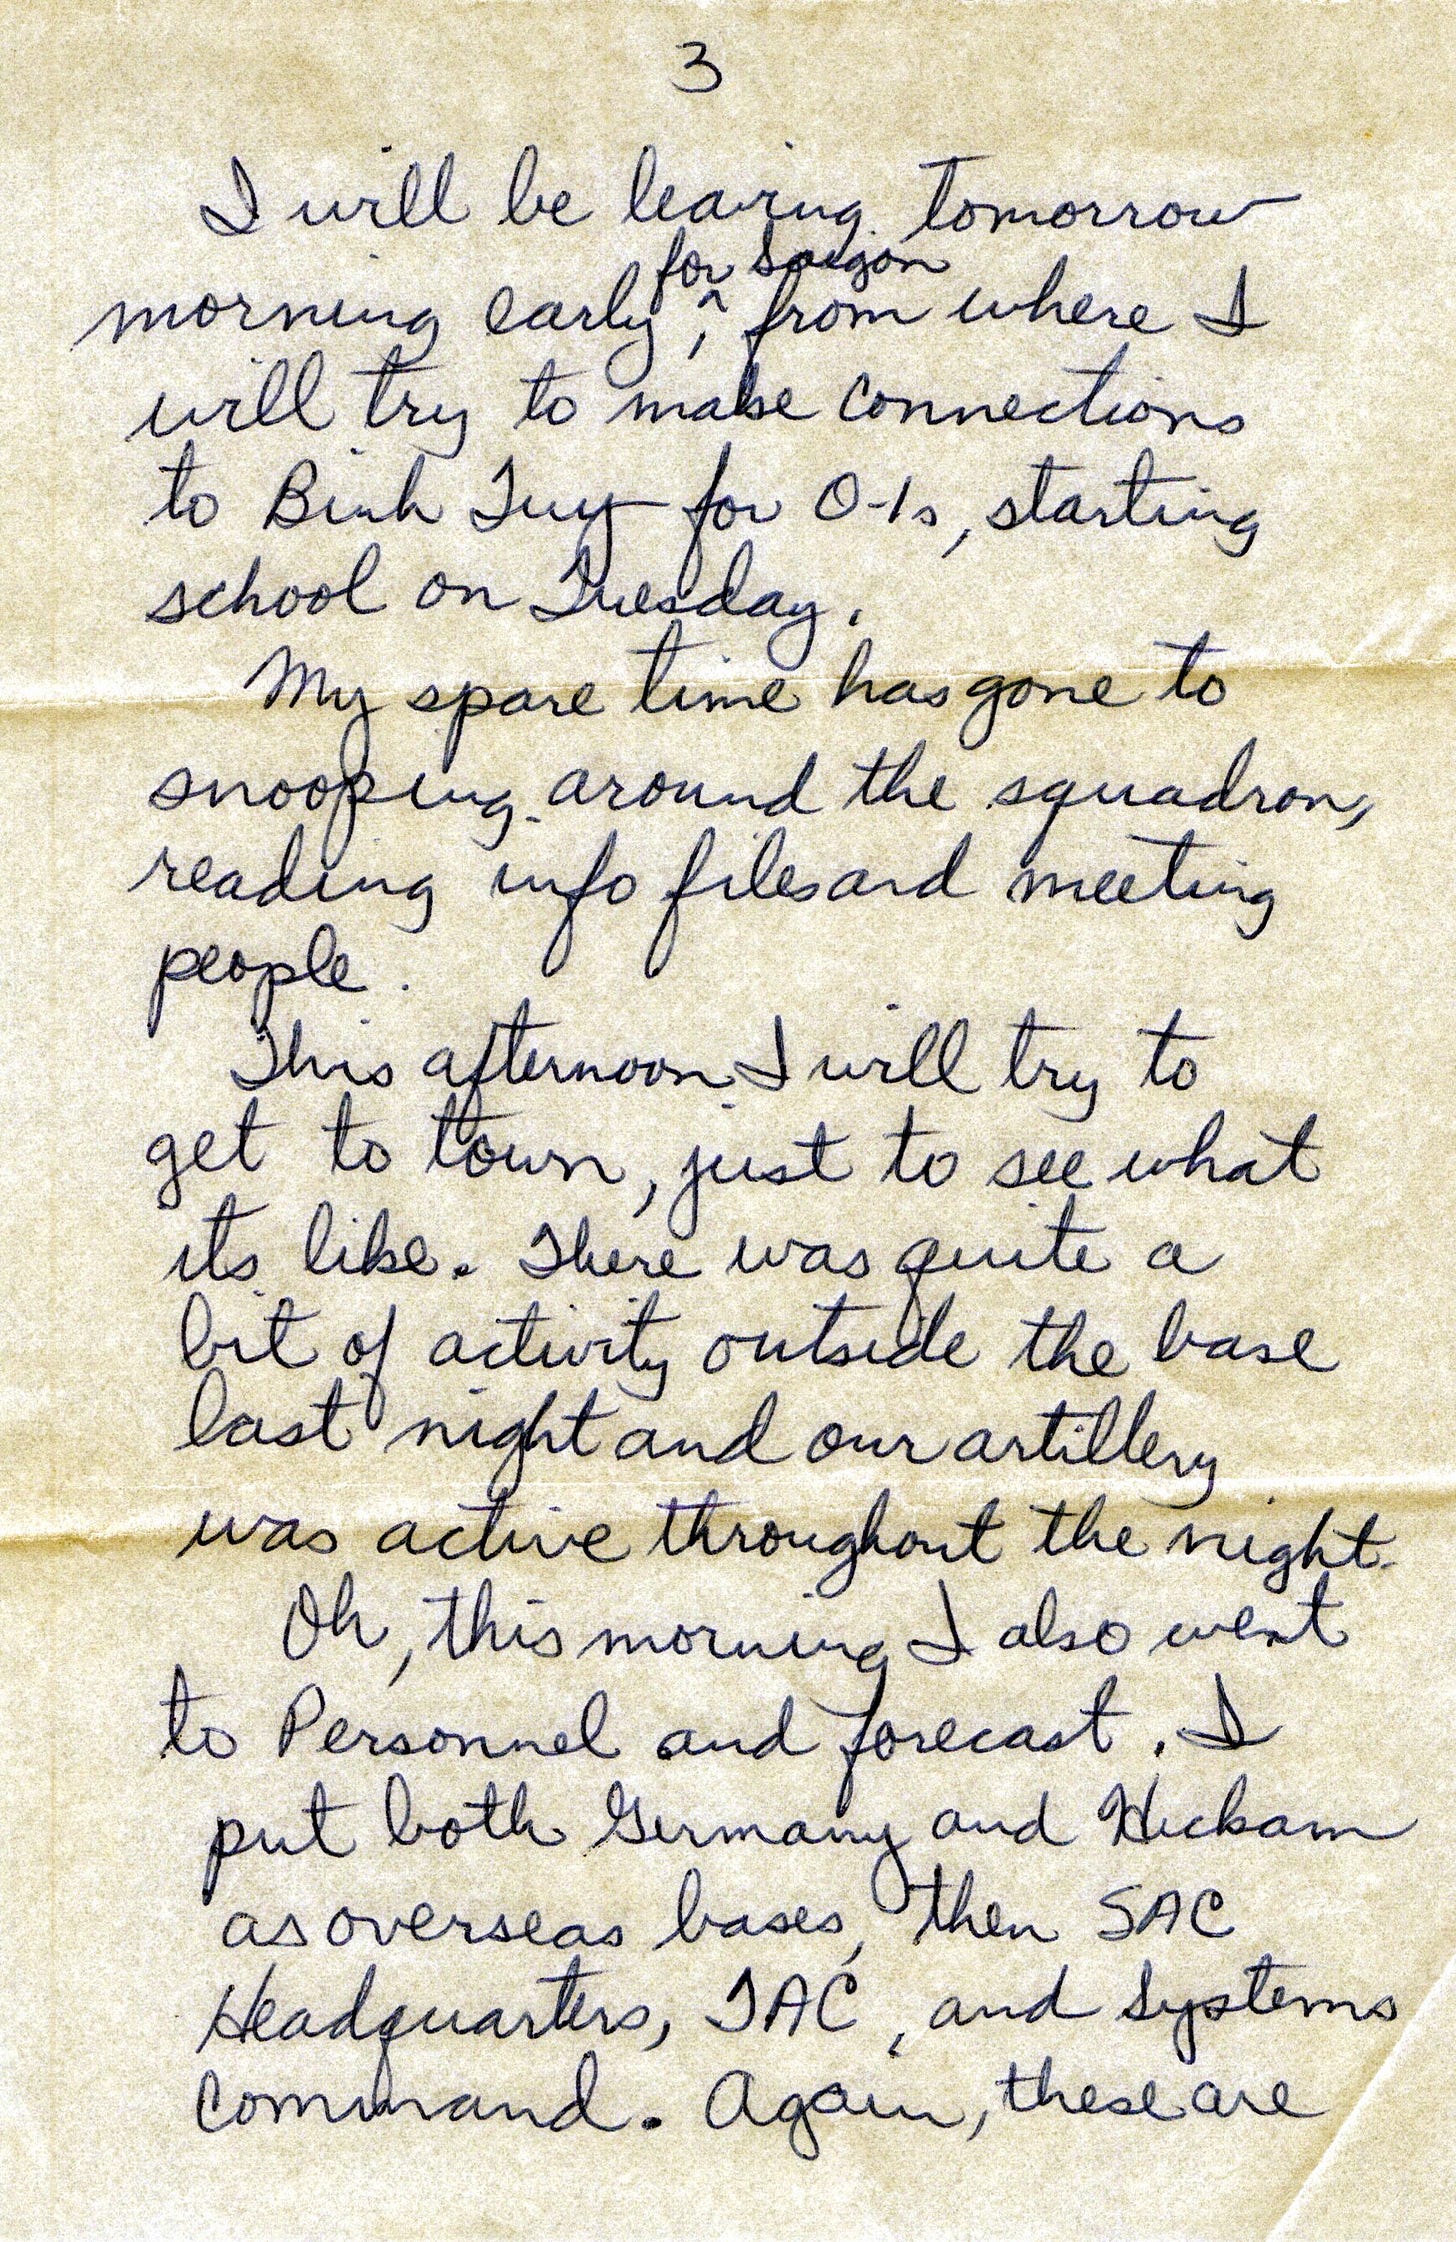 3
I will be leaving tomorrow
for Saigon
morning early ^, from where I
will try to make connections
to Binh Tuy for O-1s, starting
school on Tuesday.
My spare time has gone to
snooping around the squadron,
reading info files and meeting
people.
This afternoon I will try to
get to town, just to see what
its like. There was quite a
bit of activity outside the base
last night and our artillery
was active throughout the night.
Oh, this morning I also went
to Personnel and forecast. I
put both Germany and Hickam
as overseas bases, then SAC
Headquarters, TAC, and Systems
Command. Again, these are